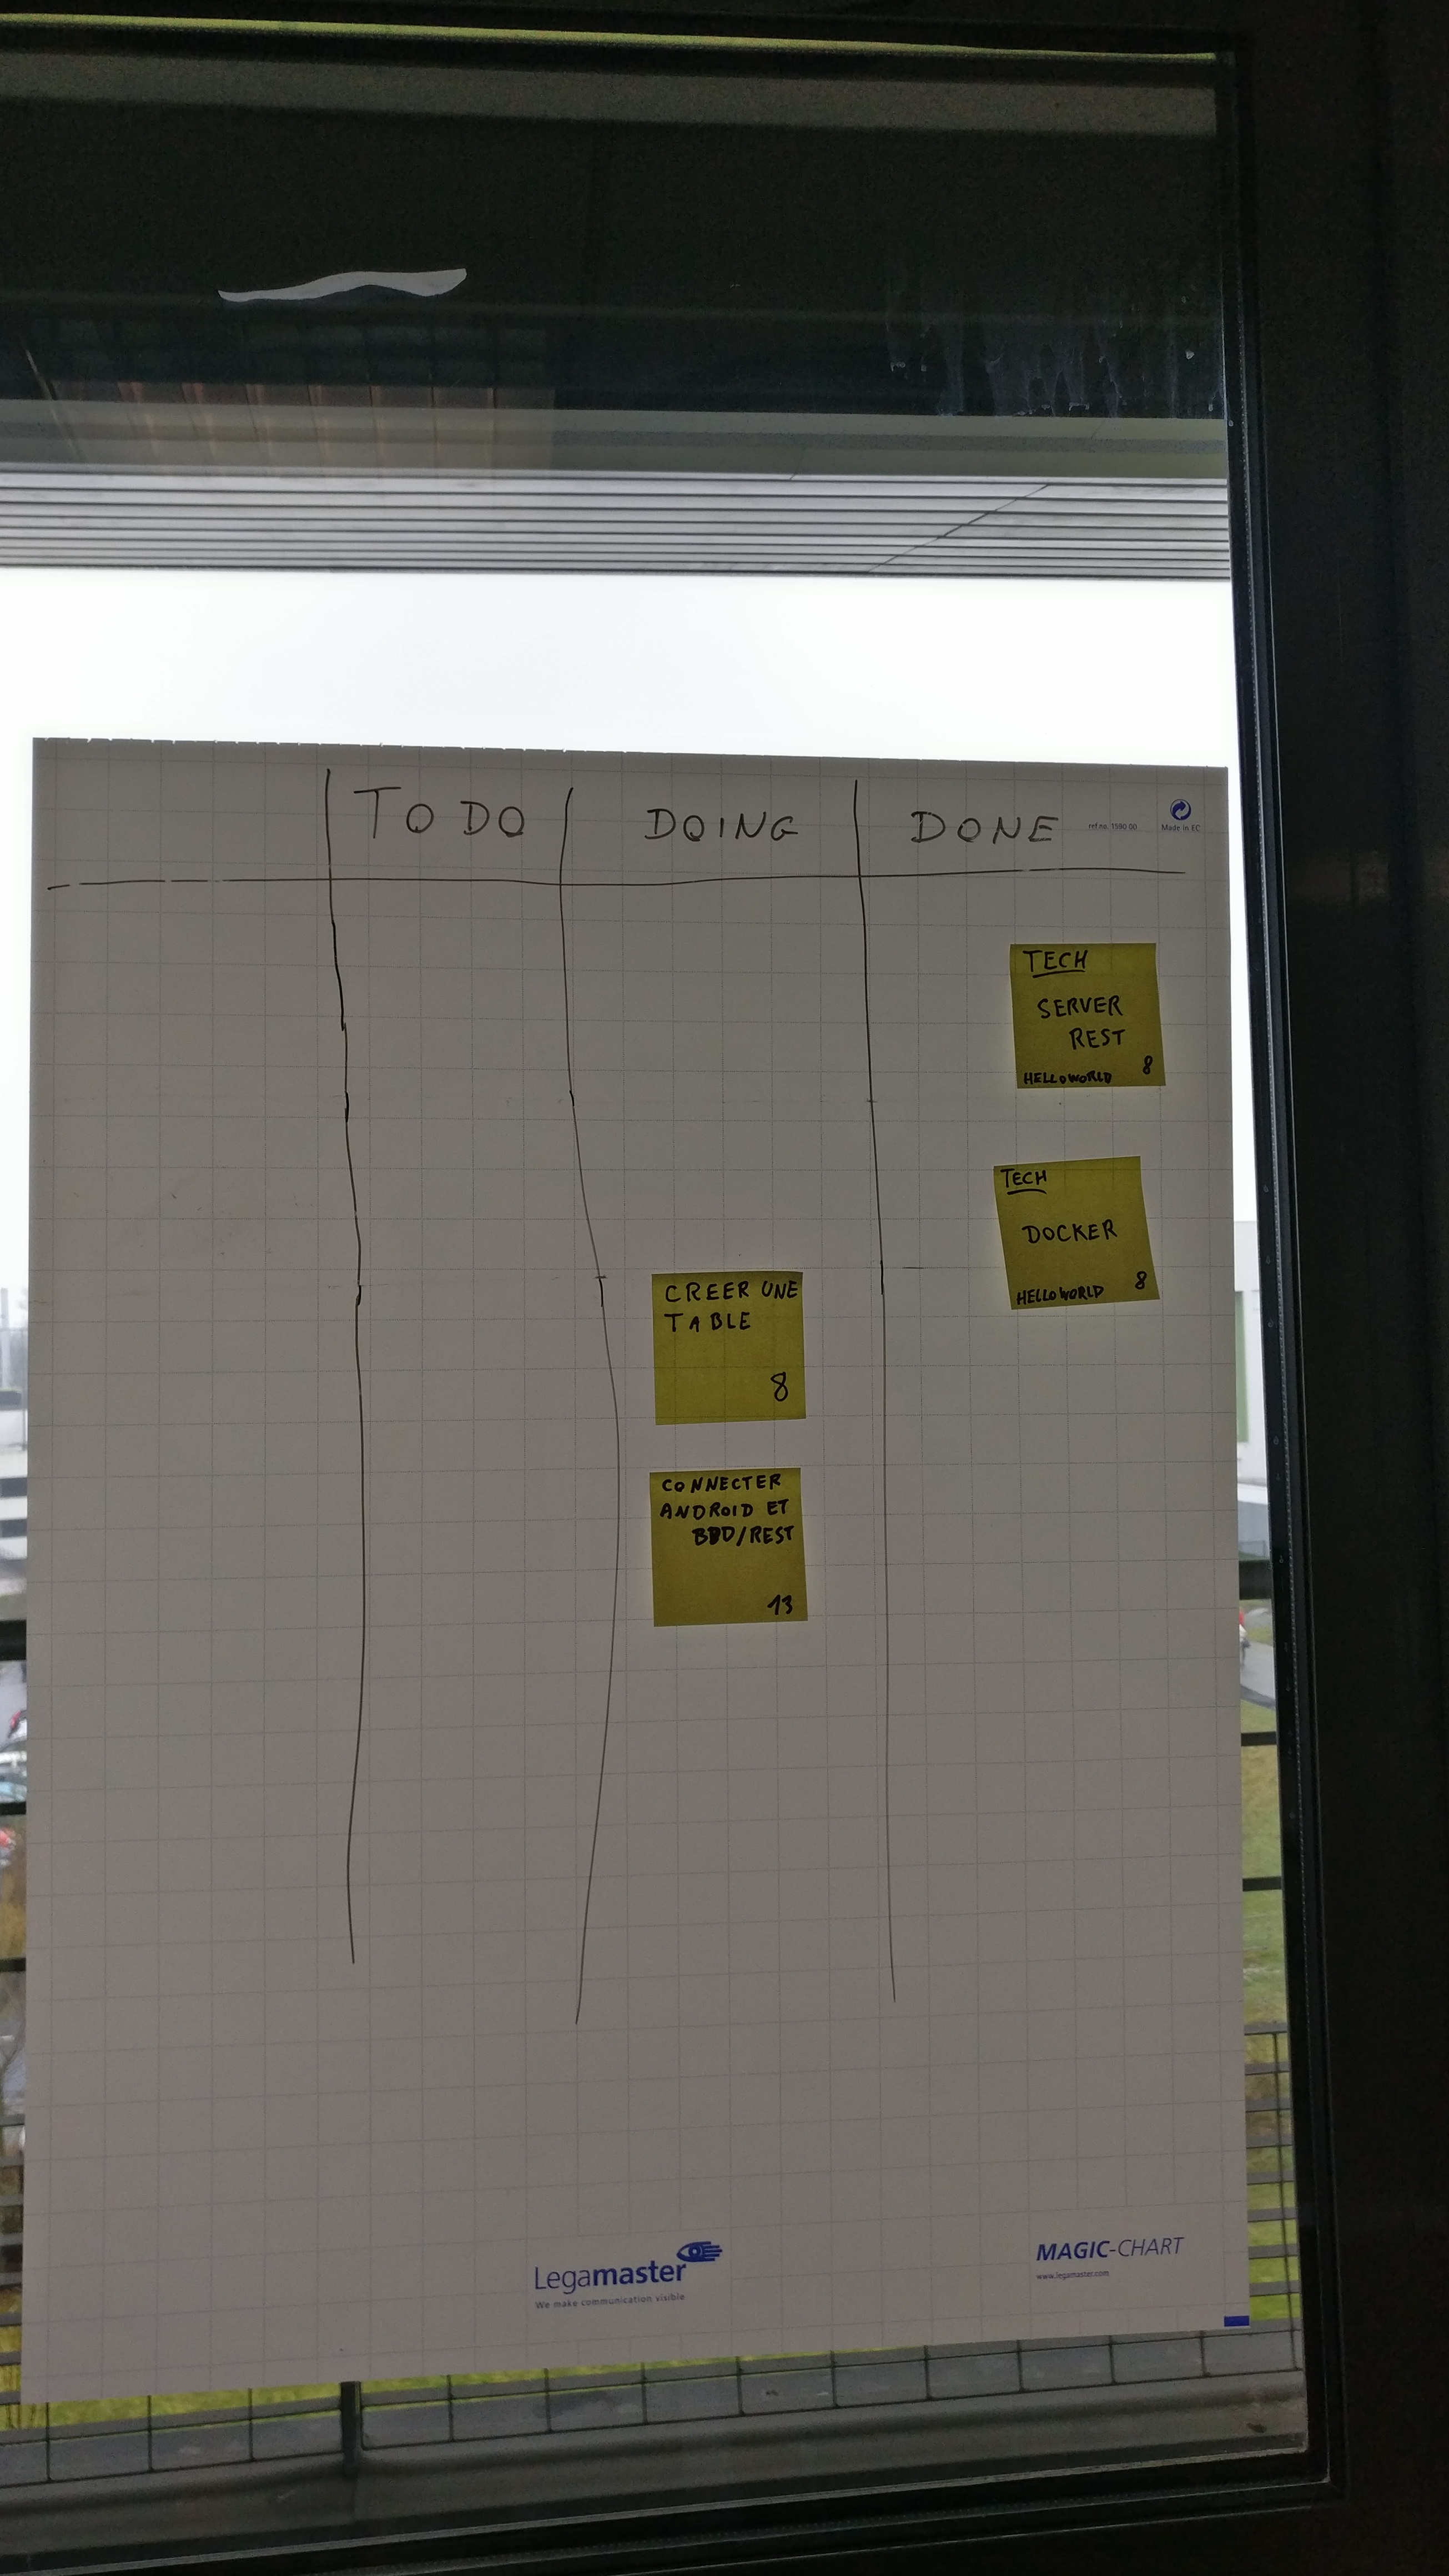 TO DO
DOING
DONE
ref.no. 1590 00
Made in EC
TECH
SERVER
REST
HELLOWORLD 8
TECH
DOCKER
HELLOWORLD 8
CREER UNE
TABLE
8
CONNECTER
ANDROID ET
BDD/REST
13
Legamaster
We make communication visible
MAGIC-CHART
www.legamaster.com